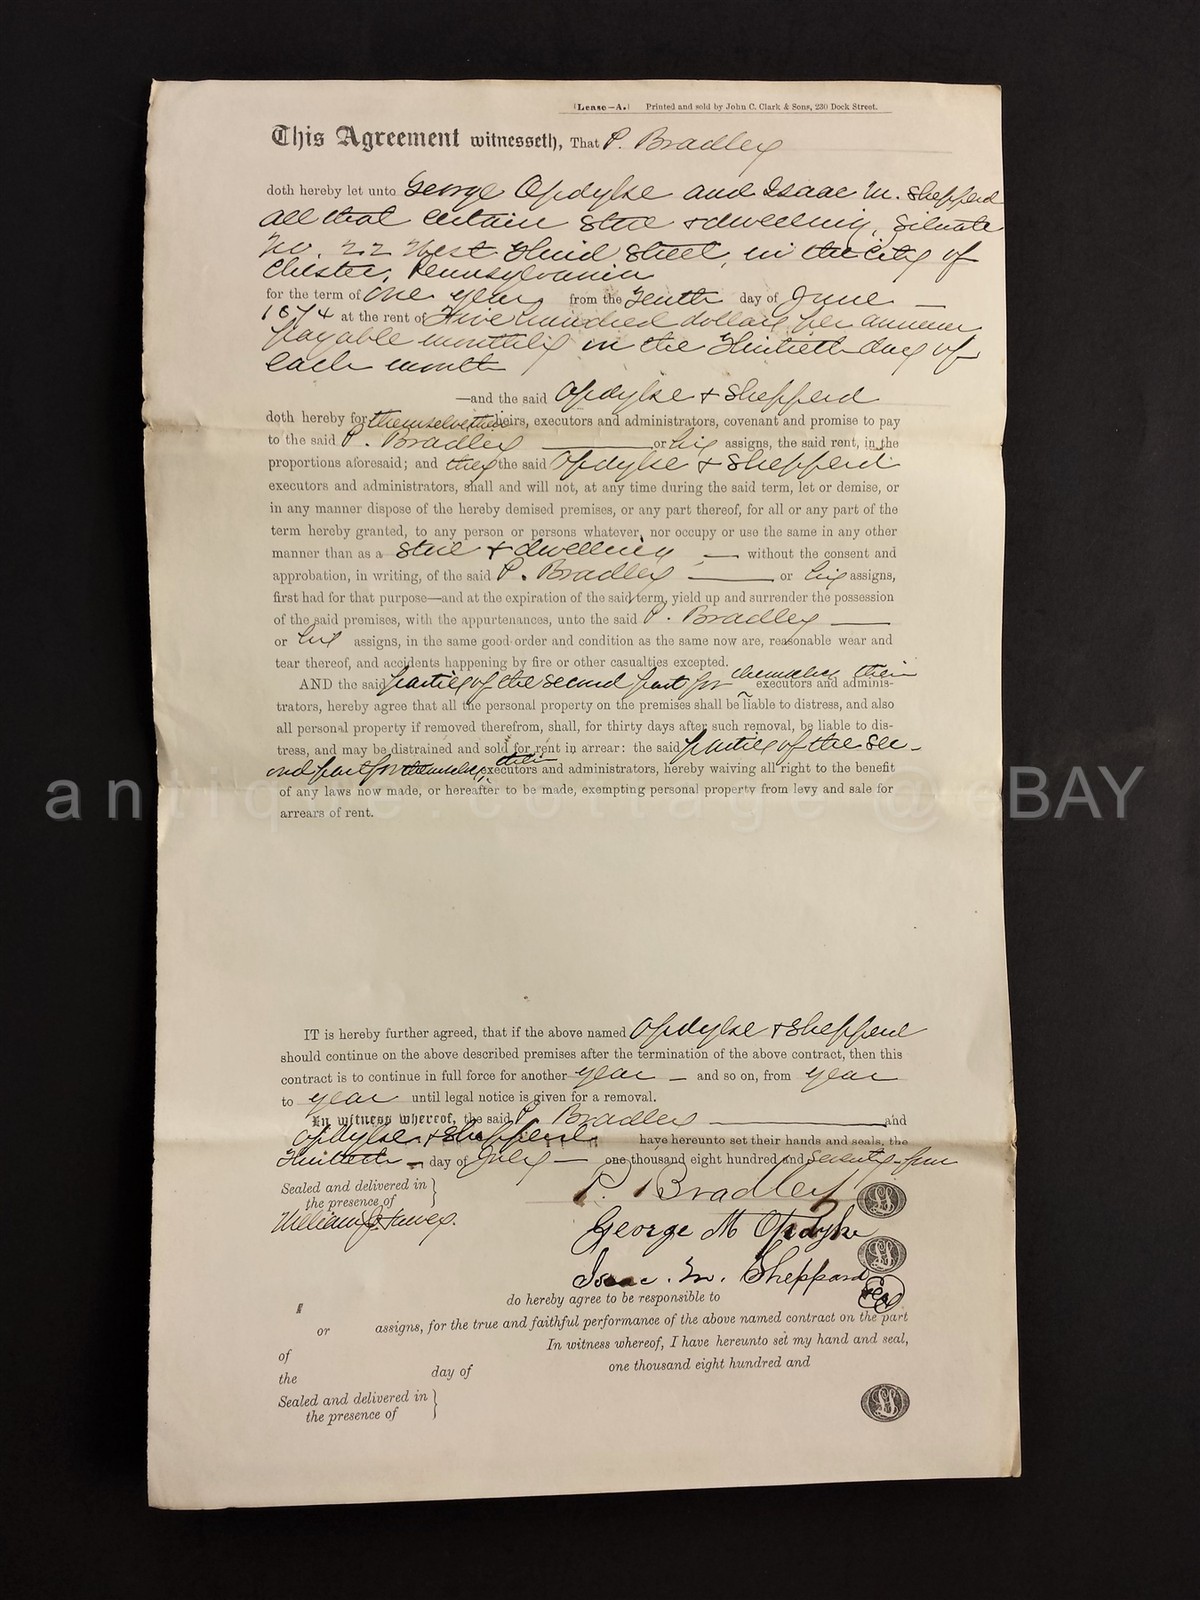 (Lease—A.) Printed and sold by John C. Clark & Sons, 230 Dock Street.
This Agreement witnesseth, That P. Bradley
doth hereby let unto George Opdylke and Isaac M. Shepperd
all that certain store & dwelling, Situate
No. 22 West Third Street, in the City of
Chester, Pennsylvania
for the term of One year, from the Tenth day of June —
1874 at the rent of Five hundred dollars per annum
payable monthly on the Thirtieth day of
each month
—and the said Opdylke & Shepperd
doth hereby for themselves their heirs, executors and administrators, covenant and promise to pay
to the said P. Bradley or his assigns, the said rent, in the
proportions aforesaid; and they the said Opdylke & Shepperd
executors and administrators, shall and will not, at any time during the said term, let or demise, or
in any manner dispose of the hereby demised premises, or any part thereof, for all or any part of the
term hereby granted, to any person or persons whatever, nor occupy or use the same in any other
manner than as a store & dwelling — without the consent and
approbation, in writing, of the said P. Bradley — or his assigns,
first had for that purpose—and at the expiration of the said term, yield up and surrender the possession
of the said premises, with the appurtenances, unto the said P. Bradley —
or his assigns, in the same good order and condition as the same now are, reasonable wear and
tear thereof, and accidents happening by fire or other casualties excepted.
AND the said parties of the second part for themselves their executors and adminis-
trators, hereby agree that all the personal property on the premises shall be liable to distress, and also
all personal property if removed therefrom, shall, for thirty days after such removal, be liable to dis-
tress, and may be distrained and sold for rent in arrear: the said parties of the sec-
ond part for themselves, their executors and administrators, hereby waiving all right to the benefit
of any laws now made, or hereafter to be made, exempting personal property from levy and sale for
arrears of rent.
IT is hereby further agreed, that if the above named Opdylke & Shepperd
should continue on the above described premises after the termination of the above contract, then this
contract is to continue in full force for another year — and so on, from year
to year until legal notice is given for a removal.
In witness whereof, the said P. Bradley and
Opdylke & Shepperd have hereunto set their hands and seals, the
Thirtieth — day of July — one thousand eight hundred and seventy-four
Sealed and delivered in
the presence of
William
P. Bradley
George M Opdyke
Isaac. M. Sheppard Seal
do hereby agree to be responsible to
or assigns, for the true and faithful performance of the above named contract on the part
of In witness whereof, I have hereunto set my hand and seal,
the day of one thousand eight hundred and
Sealed and delivered in
the presence of
@eBAY